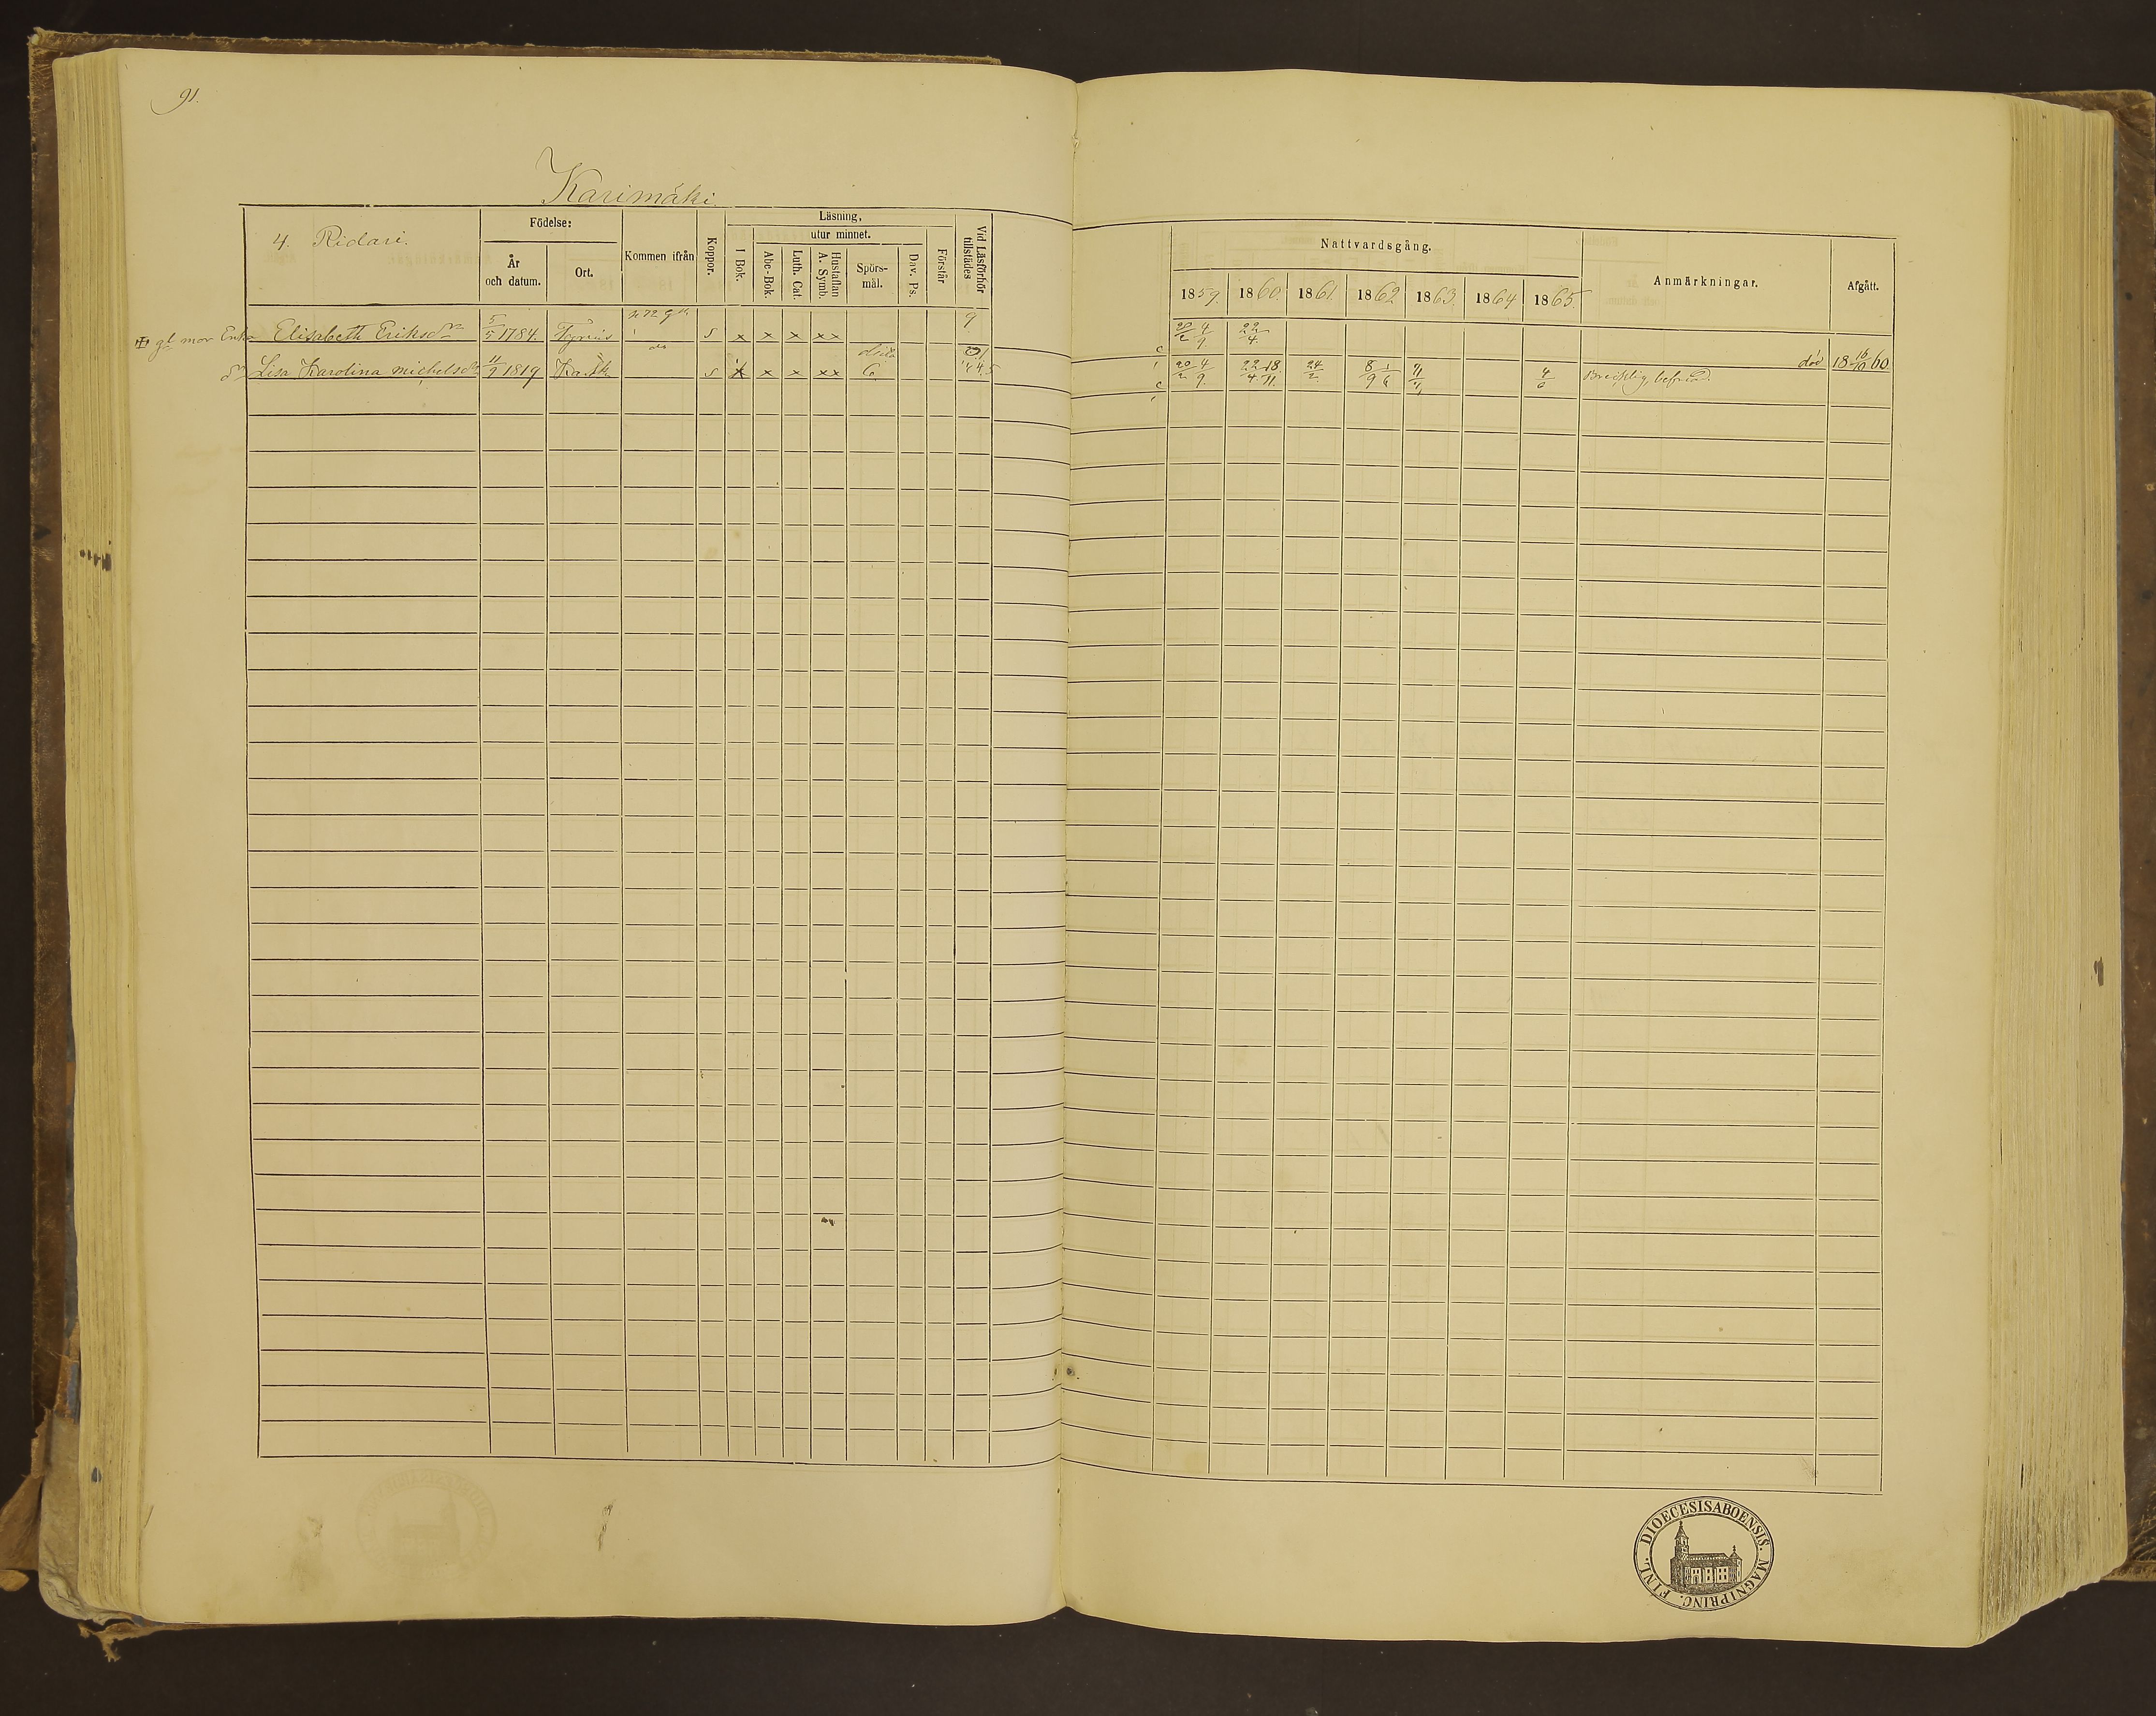 91.
Karimäki.
4. Ridari.
Födelse:
År och datum.
Ort.
Kommen ifrån
Koppor.
Läsning,
I Bok.
utur minnet.
Abc-Bok.
Luth. Cat.
Hustaflan A. Symb.
Spörs-mål.
Dav. Ps.
Förstår
Vid Läsförhör tillstädes
Nattvardsgång.
1859. 1860. 1861. 1862. 1863. 1864 1865.
Anmärkningar.
Afgått.
gl mor Enka Elisabeth Eriksdr 5/5 1784. s x x x xx 9 20/2 4/9. 22/4. död 18 16/10 60
dr Lisa Karolina Michelsdr 11/9 1819 s x x x xx 20/2 4/9. 22/4. 18/11. 24/2. 8/9 1/6 4/6
FINL. DIOECESIS ABOENSIS. MAGNI PRINC.